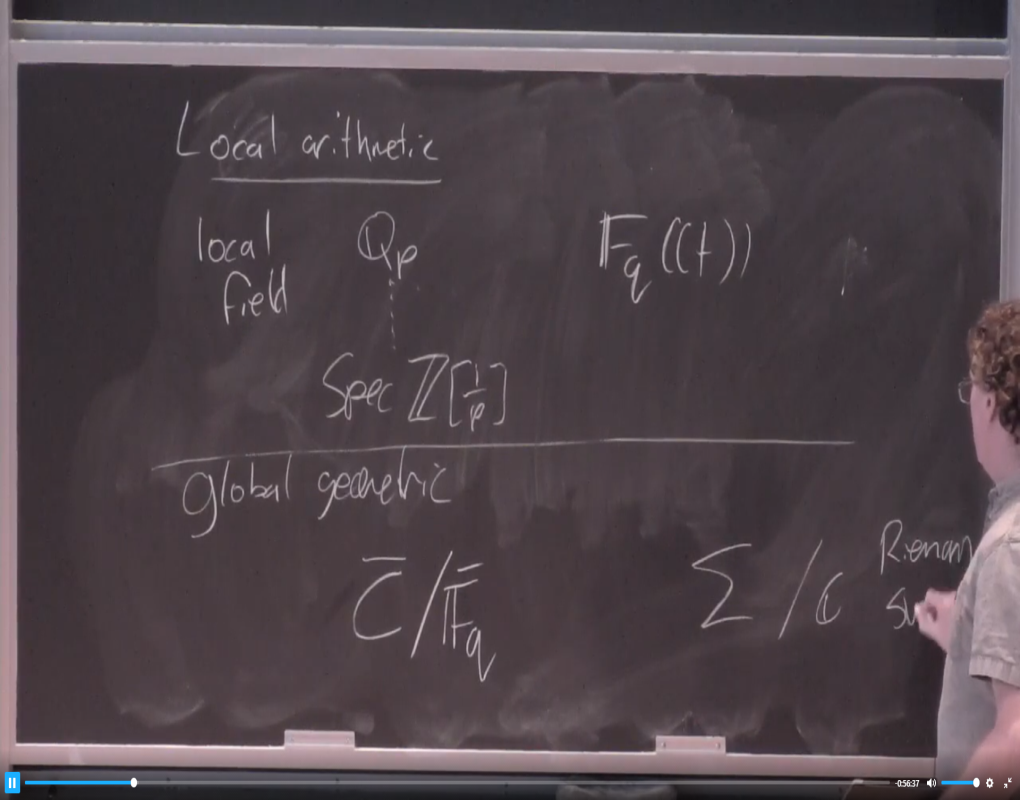 Local arithmetic
local ℚp 𝔽q((t))
field
Spec ℤ[1/p]
global geometric
C̄/𝔽̄q Σ/ℂ Rieman
su
-0:56:37